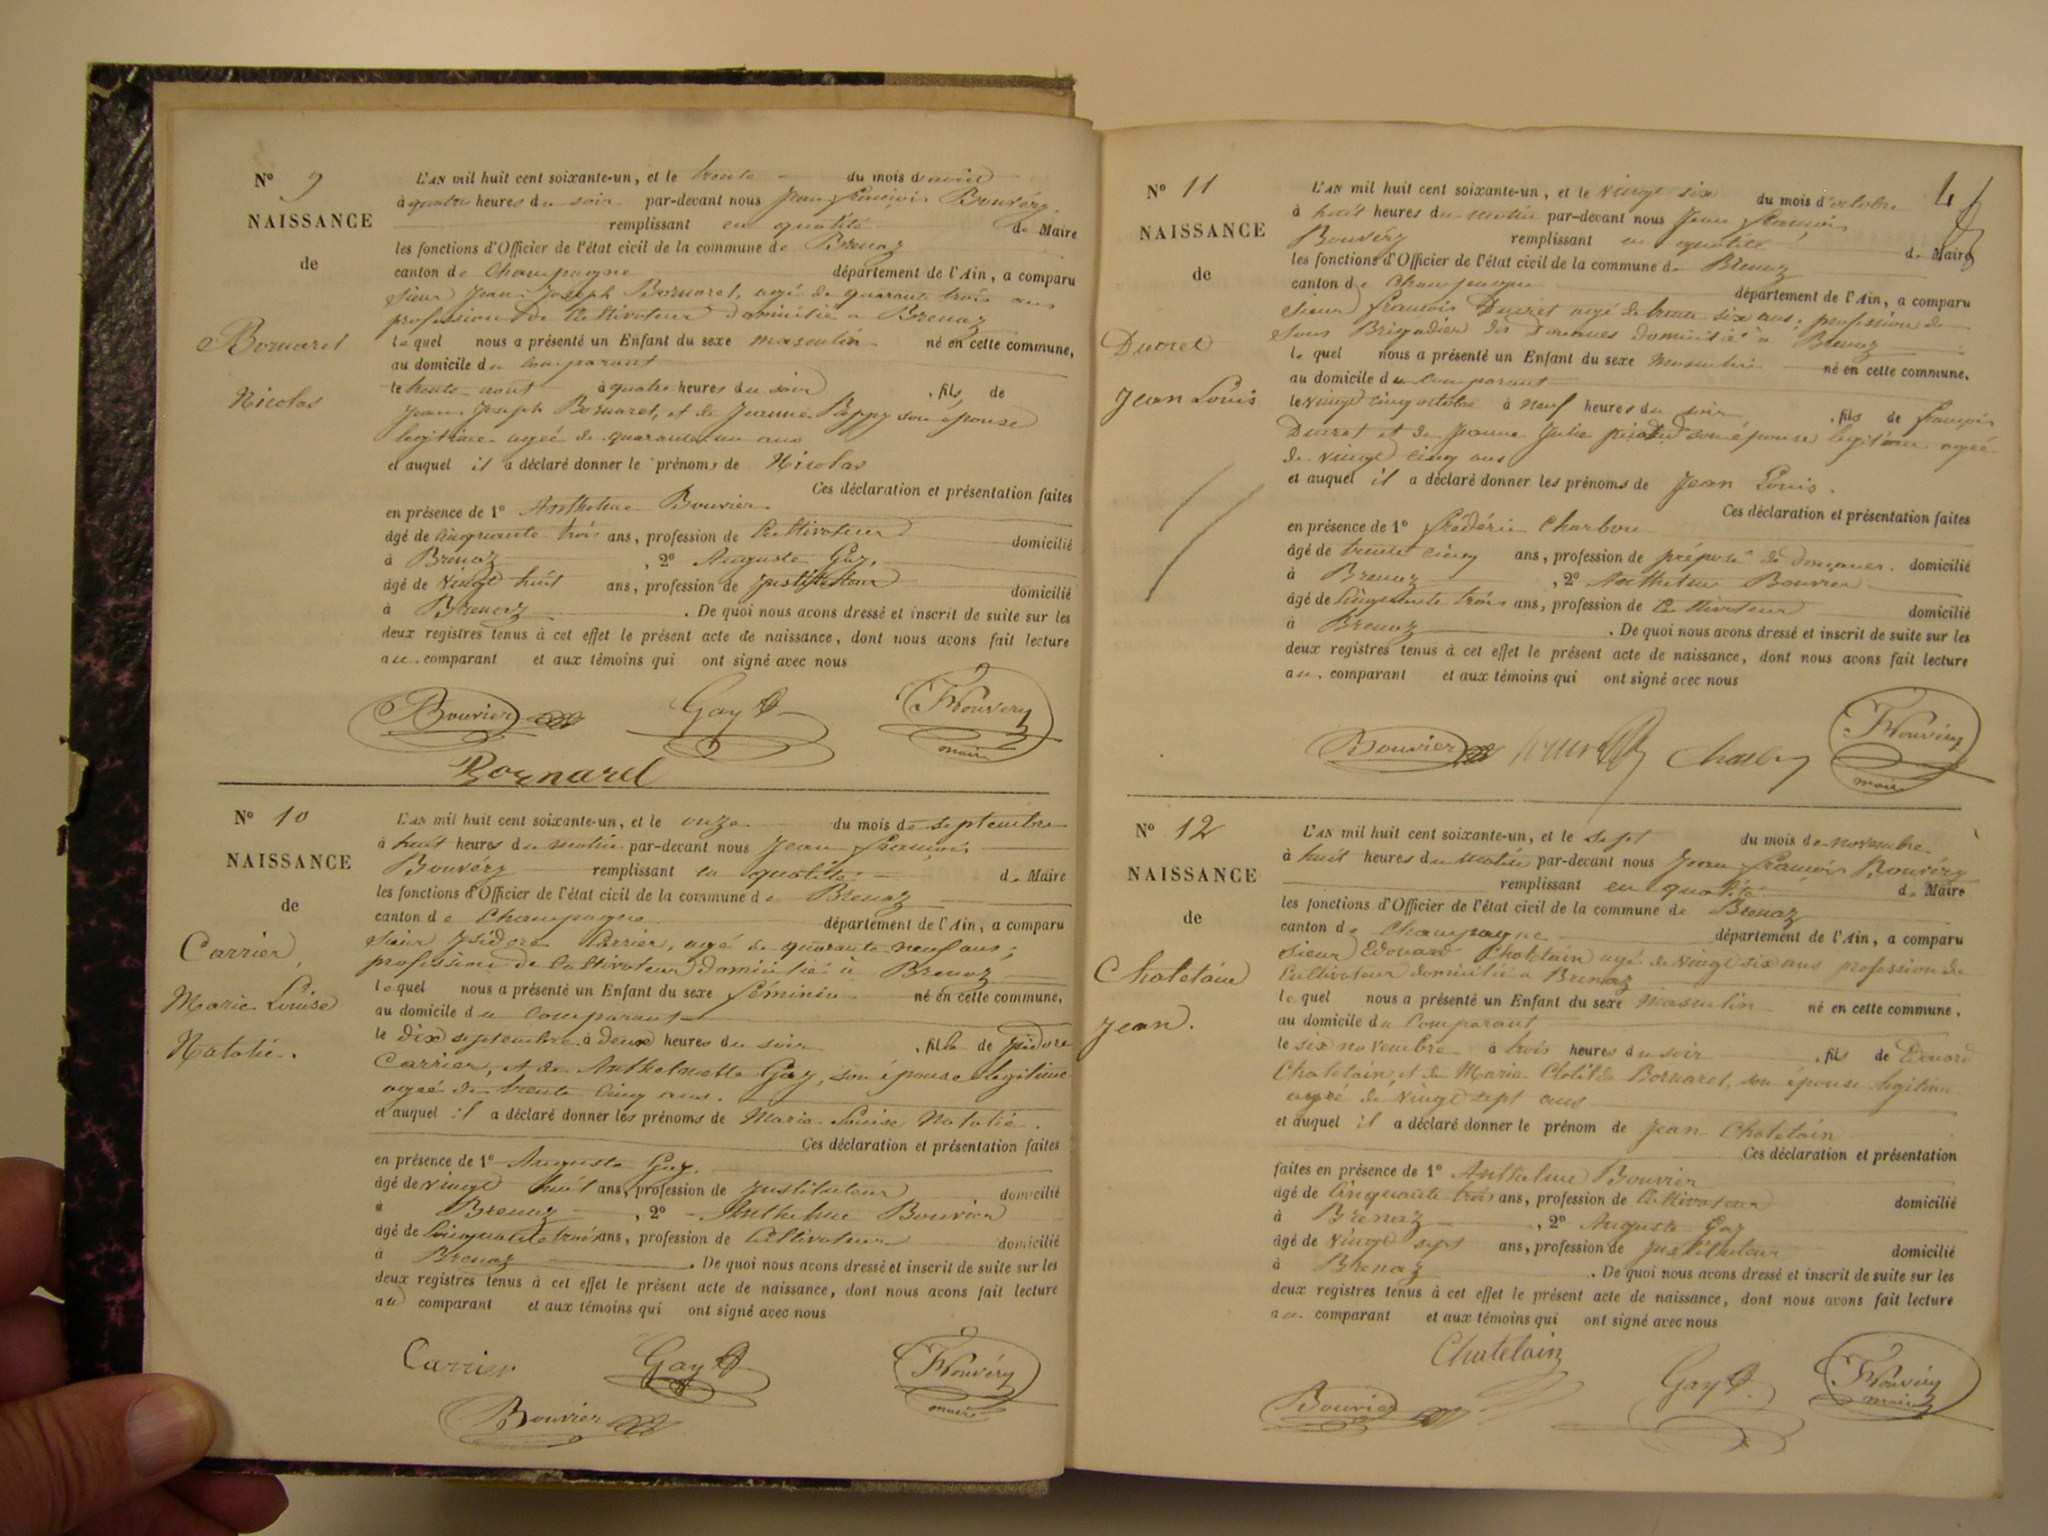 N° 9
NAISSANCE
de
Bornarel
Nicolas
L'AN mil huit cent soixante-un, et le trente du mois d'août
à quatre heures du soir par-devant nous Jean François Bouvéry
remplissant en qualité de Maire
les fonctions d'Officier de l'état civil de la commune de Brenaz
canton de Champagne département de l'Ain, a comparu
sieur Jean Joseph Bornarel, agé de quarante trois ans
profession de Cultivateur domicilié à Brenaz
lequel nous a présenté un Enfant du sexe masculin né en cette commune,
au domicile du comparant
le trente août à quatre heures du soir, fils de
Jean Joseph Bornarel, et de Jeanne Pappy son épouse
legitime agée de quarante un ans
et auquel il a déclaré donner le prénoms de Nicolas
Ces déclaration et présentation faites
en présence de 1° Anthelme Bouvier
âgé de cinquante trois ans, profession de Cultivateur domicilié
à Brenaz, 2° Auguste Gay,
âgé de vingt huit ans, profession de Instituteur domicilié
à Brenaz. De quoi nous avons dressé et inscrit de suite sur les
deux registres tenus à cet effet le présent acte de naissance, dont nous avons fait lecture
au comparant et aux témoins qui ont signé avec nous
Bouvier Gay Bouvéry
maire
Bornarel
N° 10
NAISSANCE
de
Carrier,
Marie Louise
Natalie.
L'AN mil huit cent soixante-un, et le onze du mois de septembre
à huit heures du matin par-devant nous Jean François
Bouvéry remplissant en qualité de Maire
les fonctions d'Officier de l'état civil de la commune de Brenaz
canton de Champagne département de l'Ain, a comparu
sieur Isidore Carrier, agé de quarante neuf ans;
profession de Cultivateur domicilié à Brenaz
lequel nous a présenté un Enfant du sexe féminin né en cette commune,
au domicile du comparant
le dix septembre à deux heures du soir, fille de Isidore
Carrier, et de Anthelmette Gay, son épouse legitime
agée de trente cinq ans.
et auquel il a déclaré donner les prénoms de Marie Louise Natalie.
Ces déclaration et présentation faites
en présence de 1° Auguste Gay.
âgé de vingt huit ans, profession de Instituteur domicilié
à Brenaz, 2° Anthelme Bouvier
âgé de Cinquante trois ans, profession de Cultivateur domicilié
à Brenaz. De quoi nous avons dressé et inscrit de suite sur les
deux registres tenus à cet effet le présent acte de naissance, dont nous avons fait lecture
au comparant et aux témoins qui ont signé avec nous
Carrier Gay Bouvéry
maire
Bouvier
N° 11
NAISSANCE
de
Ducret
Jean Louis
L'AN mil huit cent soixante-un, et le vingt six du mois d'octobre
à huit heures du matin par-devant nous Jean François
Bouvéry remplissant en qualité de Maire
les fonctions d'Officier de l'état civil de la commune de Brenaz
canton de Champagne département de l'Ain, a comparu
sieur François Ducret agé de trente six ans; profession de
Sous Brigadier des Douanes domicilié à Brenaz
lequel nous a présenté un Enfant du sexe masculin né en cette commune,
au domicile du comparant
le vingt cinq octobre à neuf heures du soir, fils de François
Ducret et de Jeanne Julie son épouse legitime agée
de vingt cinq ans
et auquel il a déclaré donner les prénoms de Jean Louis.
Ces déclaration et présentation faites
en présence de 1° Frédéric Charbon
âgé de trente cinq ans, profession de préposé de douanes. domicilié
à Brenaz, 2° Anthelme Bouvier
âgé de Cinquante trois ans, profession de Cultivateur domicilié
à Brenaz. De quoi nous avons dressé et inscrit de suite sur les
deux registres tenus à cet effet le présent acte de naissance, dont nous avons fait lecture
au comparant et aux témoins qui ont signé avec nous
Bouvier Bouvéry
maire
N° 12
NAISSANCE
de
Chatelain
Jean.
L'AN mil huit cent soixante-un, et le sept du mois de novembre
à huit heures du matin par-devant nous Jean François Bouvéry
remplissant en qualité de Maire
les fonctions d'Officier de l'état civil de la commune de Brenaz
canton de Champagne département de l'Ain, a comparu
Sieur Edouard Chatelain agé de vingt six ans profession de
Cultivateur domicilié à Brenaz
lequel nous a présenté un Enfant du sexe masculin né en cette commune,
au domicile du comparant
le six novembre à trois heures du soir, fils de Edouard
Chatelain, et de Marie Clotilde Bornarel, son épouse legitime
agée de vingt sept ans
et auquel il a déclaré donner le prénom de Jean Chatelain
Ces déclaration et présentation
faites en présence de 1° Anthelme Bouvier
âgé de Cinquante trois ans, profession de Cultivateur domicilié
à Brenaz, 2° Auguste Gay
âgé de vingt sept ans, profession de Instituteur domicilié
à Brenaz. De quoi nous avons dressé et inscrit de suite sur les
deux registres tenus à cet effet le présent acte de naissance, dont nous avons fait lecture
au comparant et aux témoins qui ont signé avec nous
Chatelain
Bouvier Gay Bouvéry
maire